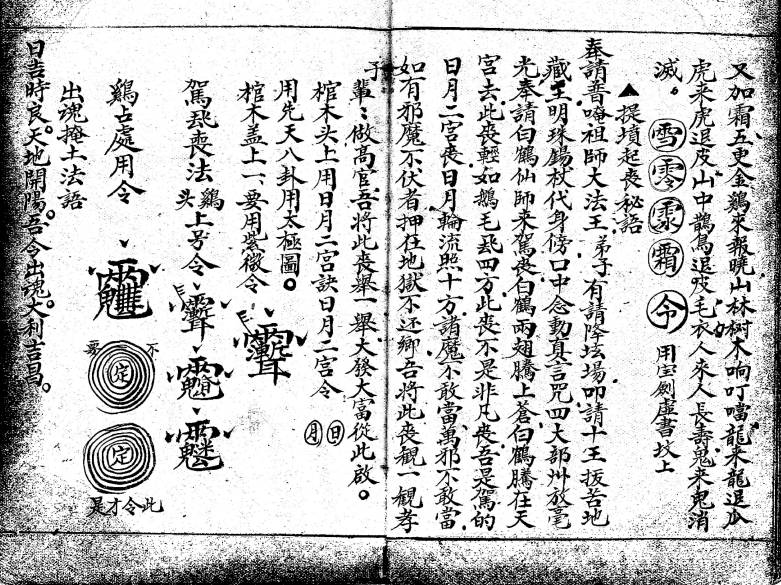 又加霜五更金鷄來報曉山林树木响叮噹龍来龍退爪
虎来虎退皮山中鵲鳥退吱毛衣人來人長壽鬼来鬼消
滅。雪零霜令用宝劍虚書坟上
▲提墳起喪秘語
奉請普唵祖師大法王弟子有請降坛場叩請十王拔苦地
藏王明珠錫杖代身傍口中念動真言咒四大部州放毫
光奉請白鶴仙師来駕喪白鶴兩翅騰上蒼白鶴騰在天
宮去此喪輕如鵝毛飛四方此喪不是非凡喪吾是駕的
日月二宮喪日月輪流照十方諸魔不敢當萬邪不敢當
如有邪魔不伏者押住地獄不还鄉吾將此喪覌一覌孝
子輩々做高官吾將此喪舉一舉大發大富從此啟。
棺木头上用日月二宮訣日月二宮令日月
用先天八卦用太極圖。
棺木盖上一、要用紫微令
駕飛喪法鷄头上号令
鷄占處用令
不要
定
定
此令才是
出魂掩土法語
日吉時良天地開陽吾令出魂大利吉昌。